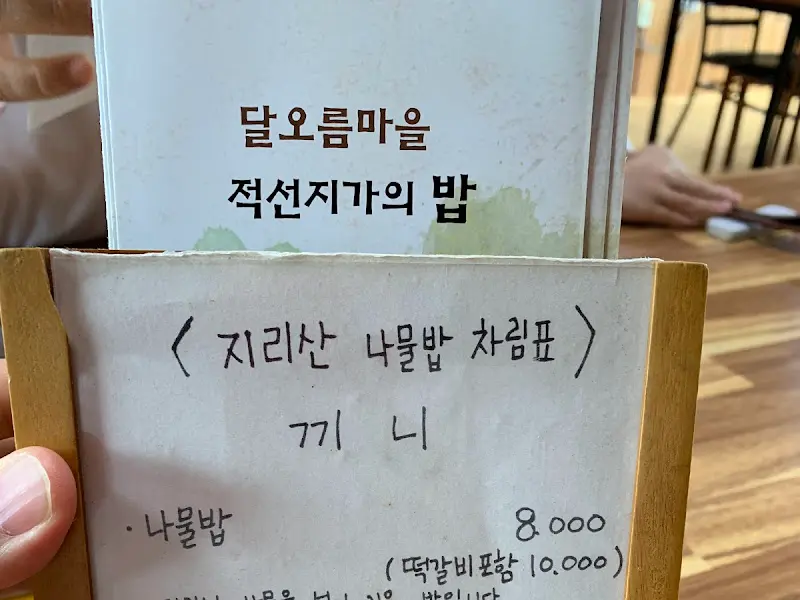 달오름마을
적선지가의 밥
< 지리산 나물밥 차림표 >
끼 니
· 나물밥 8.000
(떡갈비포함 10.000)